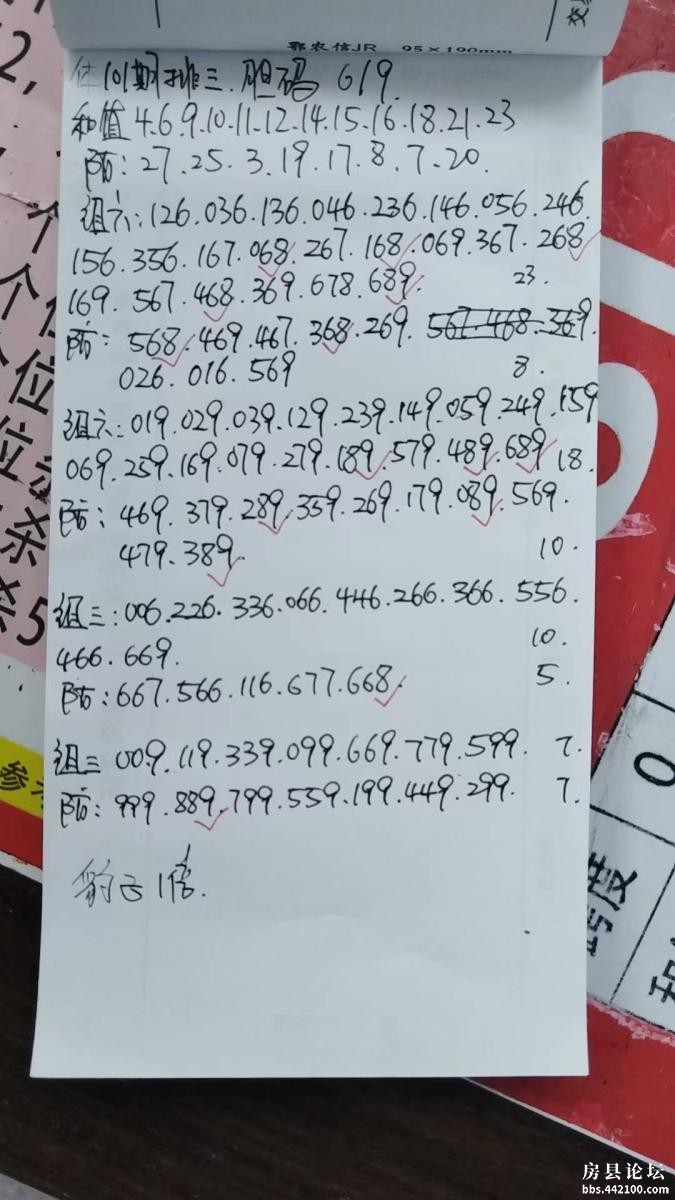 鄂农信JR 95×190mm
体101期排三.胆码 619.
和值 4.6.9.10.11.12.14.15.16.18.21.23
防: 27.25.3.19.17.8.7.20.
组六:126.036.136.046.236.146.056.246.
156.356.167.068.267.168.069.367.268
169.567.468.369.678.689. 23.
防: 568.469.467.368.269. 567.468.369.
026.016.569 8.
组六:019.029.039.129.239.149.059.249.159
069.259.169.079.279.189.579.489.689 18.
防: 469.379.289.359.269.179.089.569.
479.389. 10.
组三:006.226.336.066.446.266.366.556.
466.669. 10.
防:667.566.116.677.668. 5.
组三 009.119.339.099.669.779.599. 7.
防: 999.889.799.559.199.449.299. 7.
豹子1倍.
2,
个
个位
位
杀
杀5
参考
0
跨度
和
房县论坛
bbs.442100.com